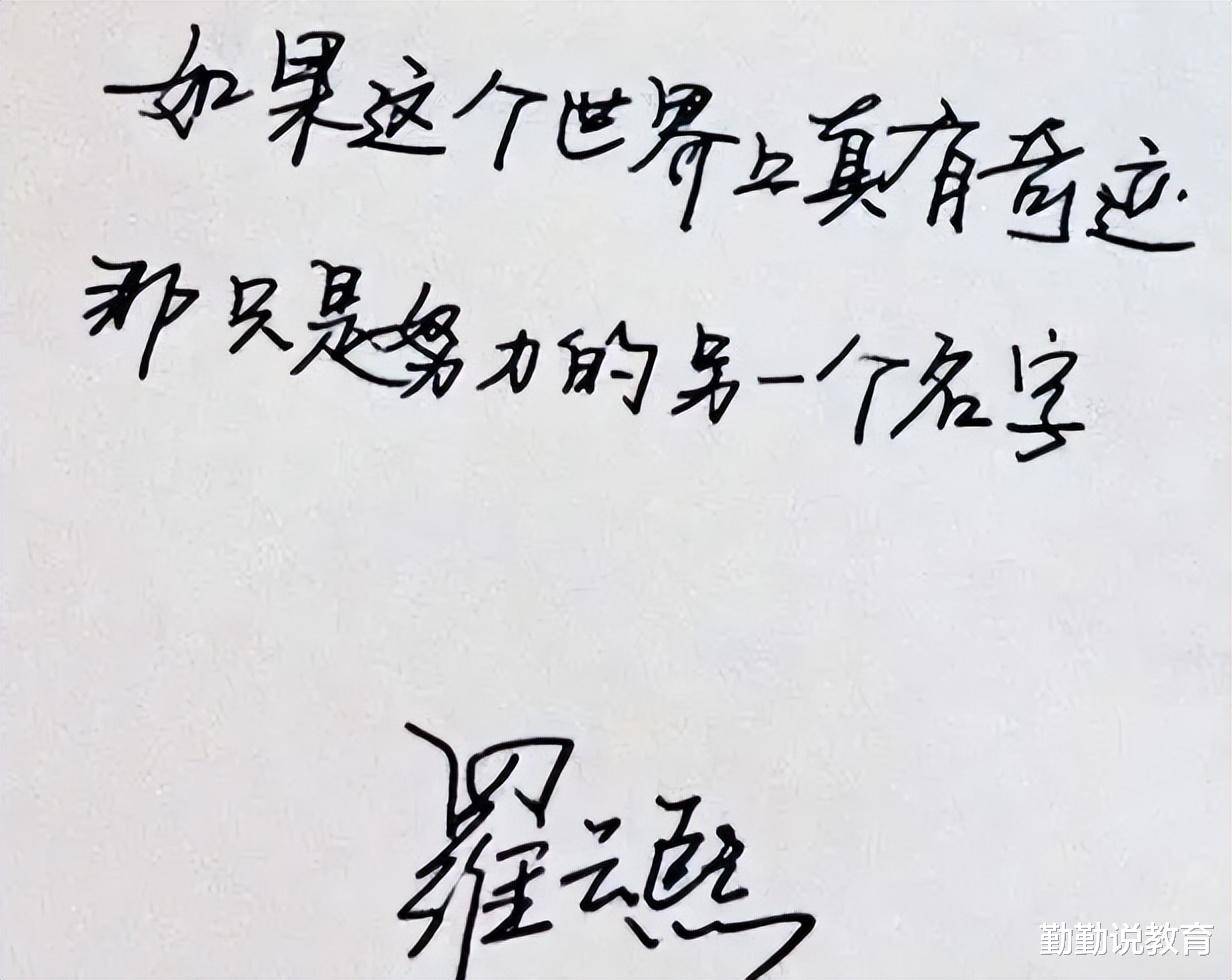 如果这个世界上真有奇迹
那只是努力的另一个名字
羅云熙
勤勤说教育